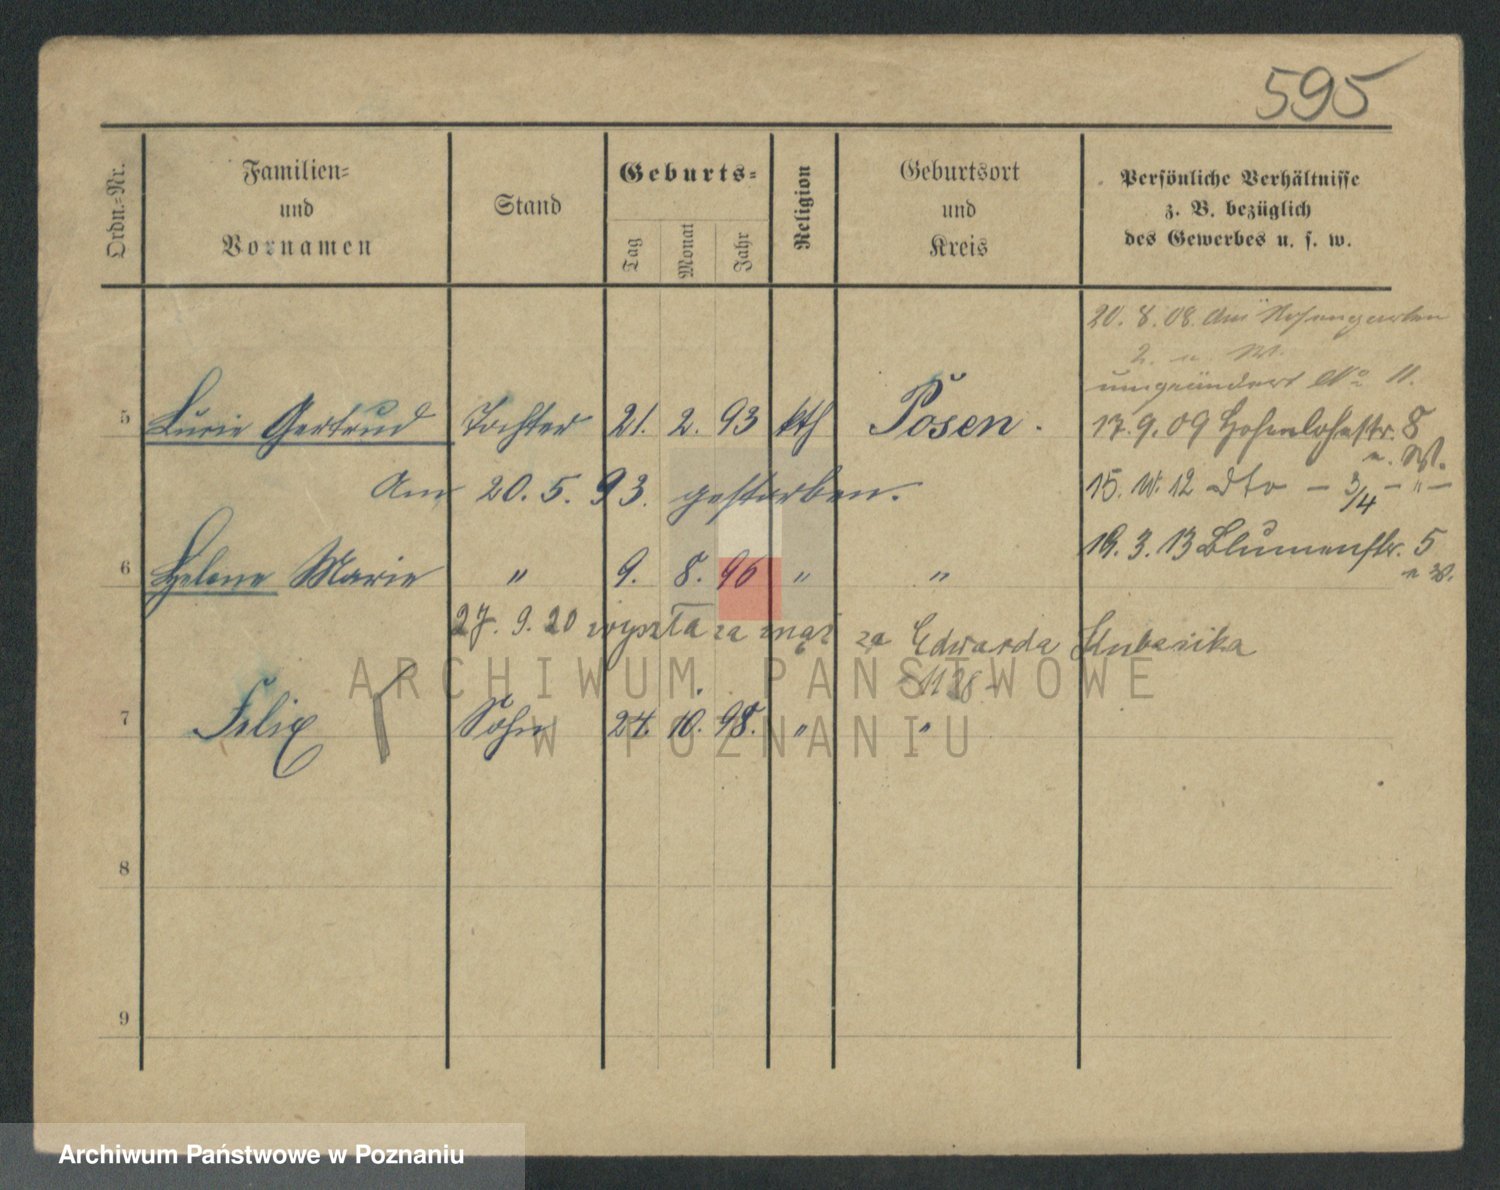 595
Ordn.=Nr.
Familien=
und
Vornamen
Stand
Geburts=
Tag
Monat
Jahr
Religion
Geburtsort
und
Kreis
Persönliche Verhältnisse
z. B. bezüglich
des Gewerbes u. s. w.
20. 8. 08. Am Rosengarten
2. n. W.
umgeändert No 11.
5 Lucie Gertrud Tochter 21. 2. 93 kth Posen.
17. 9. 09 Hohenlohestr. 8
n. W.
Am 20. 5. 93. gestorben.
15. 12 dto — 3/4 — " —
6 Helene Marie " 9. 8. 96 " "
3. 13 Blumenstr. 5
n W.
27. 9. 20 wyszła za mąż za Edwarda
7 Felix Sohn 24. 10. 98. " "
8
9
ARCHIWUM PAŃSTWOWE
W POZNANIU
Archiwum Państwowe w Poznaniu